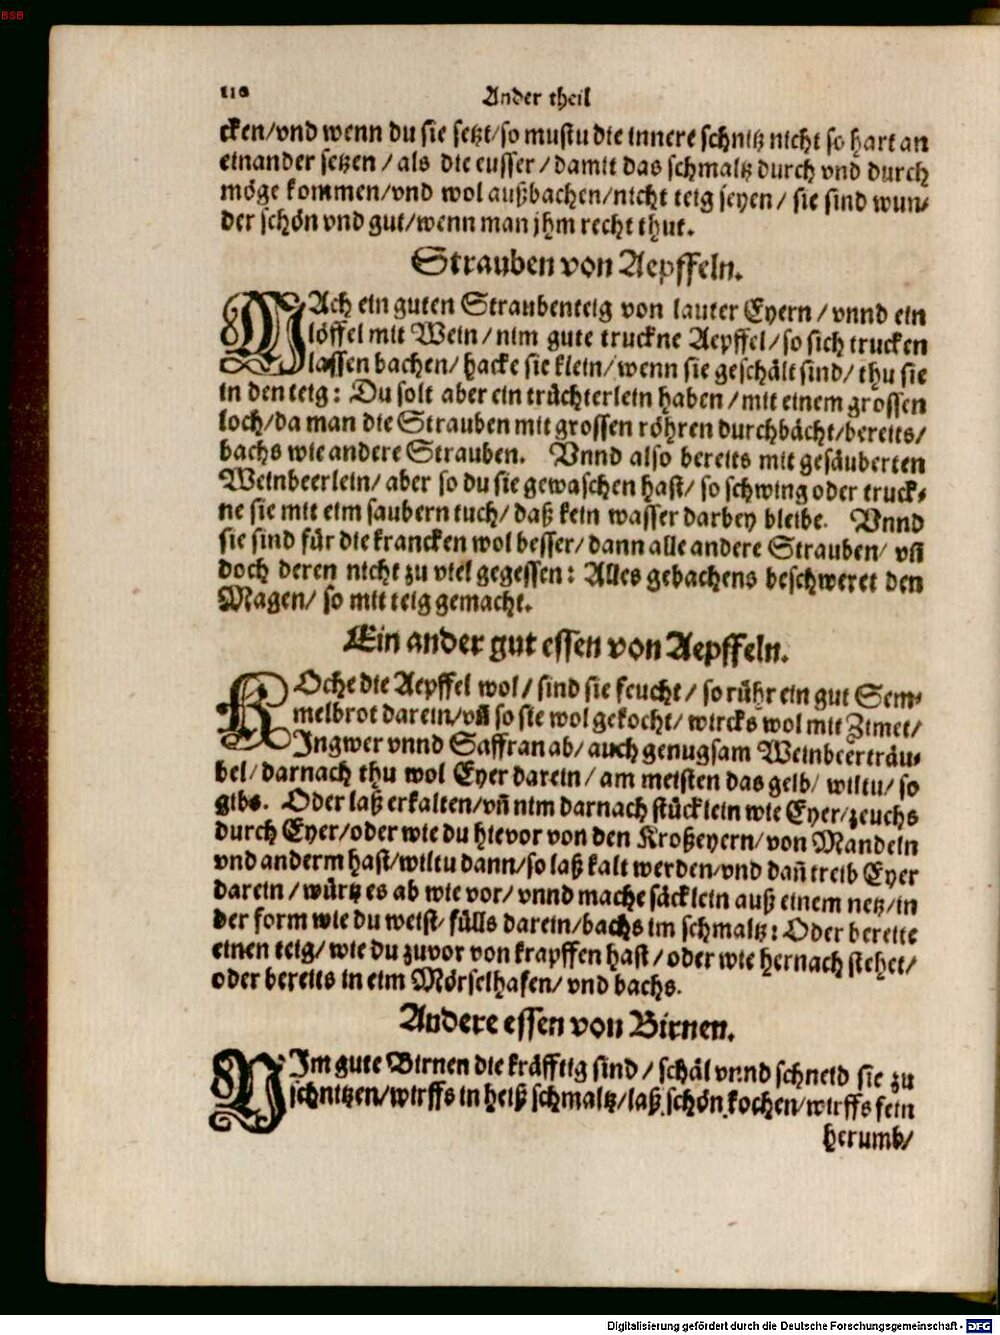 BSB
110
Ander theil
cken/vnd wenn du sie setzt/so mustu die innere schnitz nicht so hart an
einander setzen / als die eusser / damit das schmaltz durch vnd durch
möge kommen/vnd wol außbachen/nicht teig seyen / sie sind wun-
der schön vnd gut/wenn man jhm recht thut.
Strauben von Aepffeln.
MAch ein guten Straubenteig von lauter Eyern / vnnd ein
löffel mit Wein / nim gute truckne Aepffel / so sich trucken
lassen bachen/ hacke sie klein/ wenn sie geschält sind/ thu sie
in den teig: Du solt aber ein trüchterlein haben / mit einem grossen
loch/da man die Strauben mit grossen röhren durchbächt/bereits/
bachs wie andere Strauben. Vnnd also bereits mit gesäuberten
Weinbeerlein/ aber so du sie gewaschen hast/ so schwing oder truck-
ne sie mit eim saubern tuch/ daß kein wasser darbey bleibe. Vnnd
sie sind für die krancken wol besser/ dann alle andere Strauben/ vñ
doch deren nicht zu viel gegessen: Alles gebachens beschweret den
Magen/ so mit teig gemacht.
Ein ander gut essen von Aepffeln.
KOche die Aepffel wol/ sind sie feucht/ so rühr ein gut Sem-
melbrot darein/vñ so sie wol gekocht/ wircks wol mit Zimet/
Ingwer vnnd Saffran ab/ auch genugsam Weinbeerträu-
bel/ darnach thu wol Eyer darein/ am meisten das gelb/ wiltu/ so
gibs. Oder laß erkalten/vñ nim darnach stücklein wie Eyer/zeuchs
durch Eyer/oder wie du hievor von den Kroßeyern/von Mandeln
vnd anderm hast/wiltu dann/so laß kalt werden/vnd dañ treib Eyer
darein / würtz es ab wie vor/ vnnd mache säcklein auß einem netz/in
der form wie du weist/ fülls darein/bachs im schmaltz: Oder bereite
einen teig/ wie du zuvor von krapffen hast/ oder wie hernach stehet/
oder bereits in eim Mörselhafen/ vnd bachs.
Andere essen von Birnen.
NIm gute Birnen die kräfftig sind/ schäl vnnd schneid sie zu
schnitzen/wirffs in heiß schmaltz/laß schön kochen/wirffs fein
herumb/
Digitalisierung gefördert durch die Deutsche Forschungsgemeinschaft - DFG